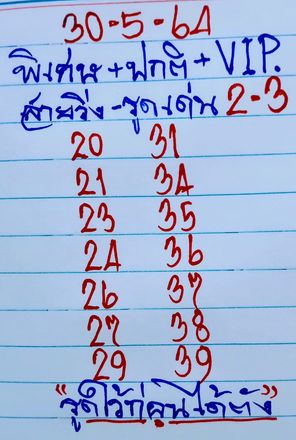 30-5-64
พิเศษ+ปกติ+VIP.
สายวิ่ง-รูดเด่น 2-3
20 31
21 34
23 35
24 36
26 37
27 38
29 39
"รูดไว้ก่อนได้ตัง"